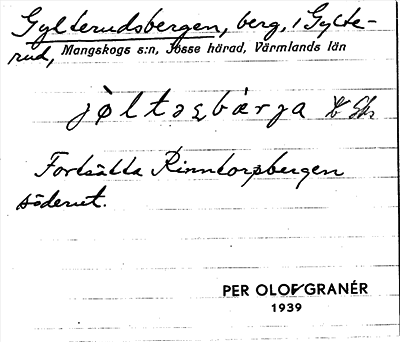 Gylterudsbergen, berg, i Gylte-
rud, Mangskogs s:n, Jösse härad, Värmlands län
jòltəʂbærja
Fortsätta Rinntorpsbergen
söderut.
PER OLOF GRANÉR
1939